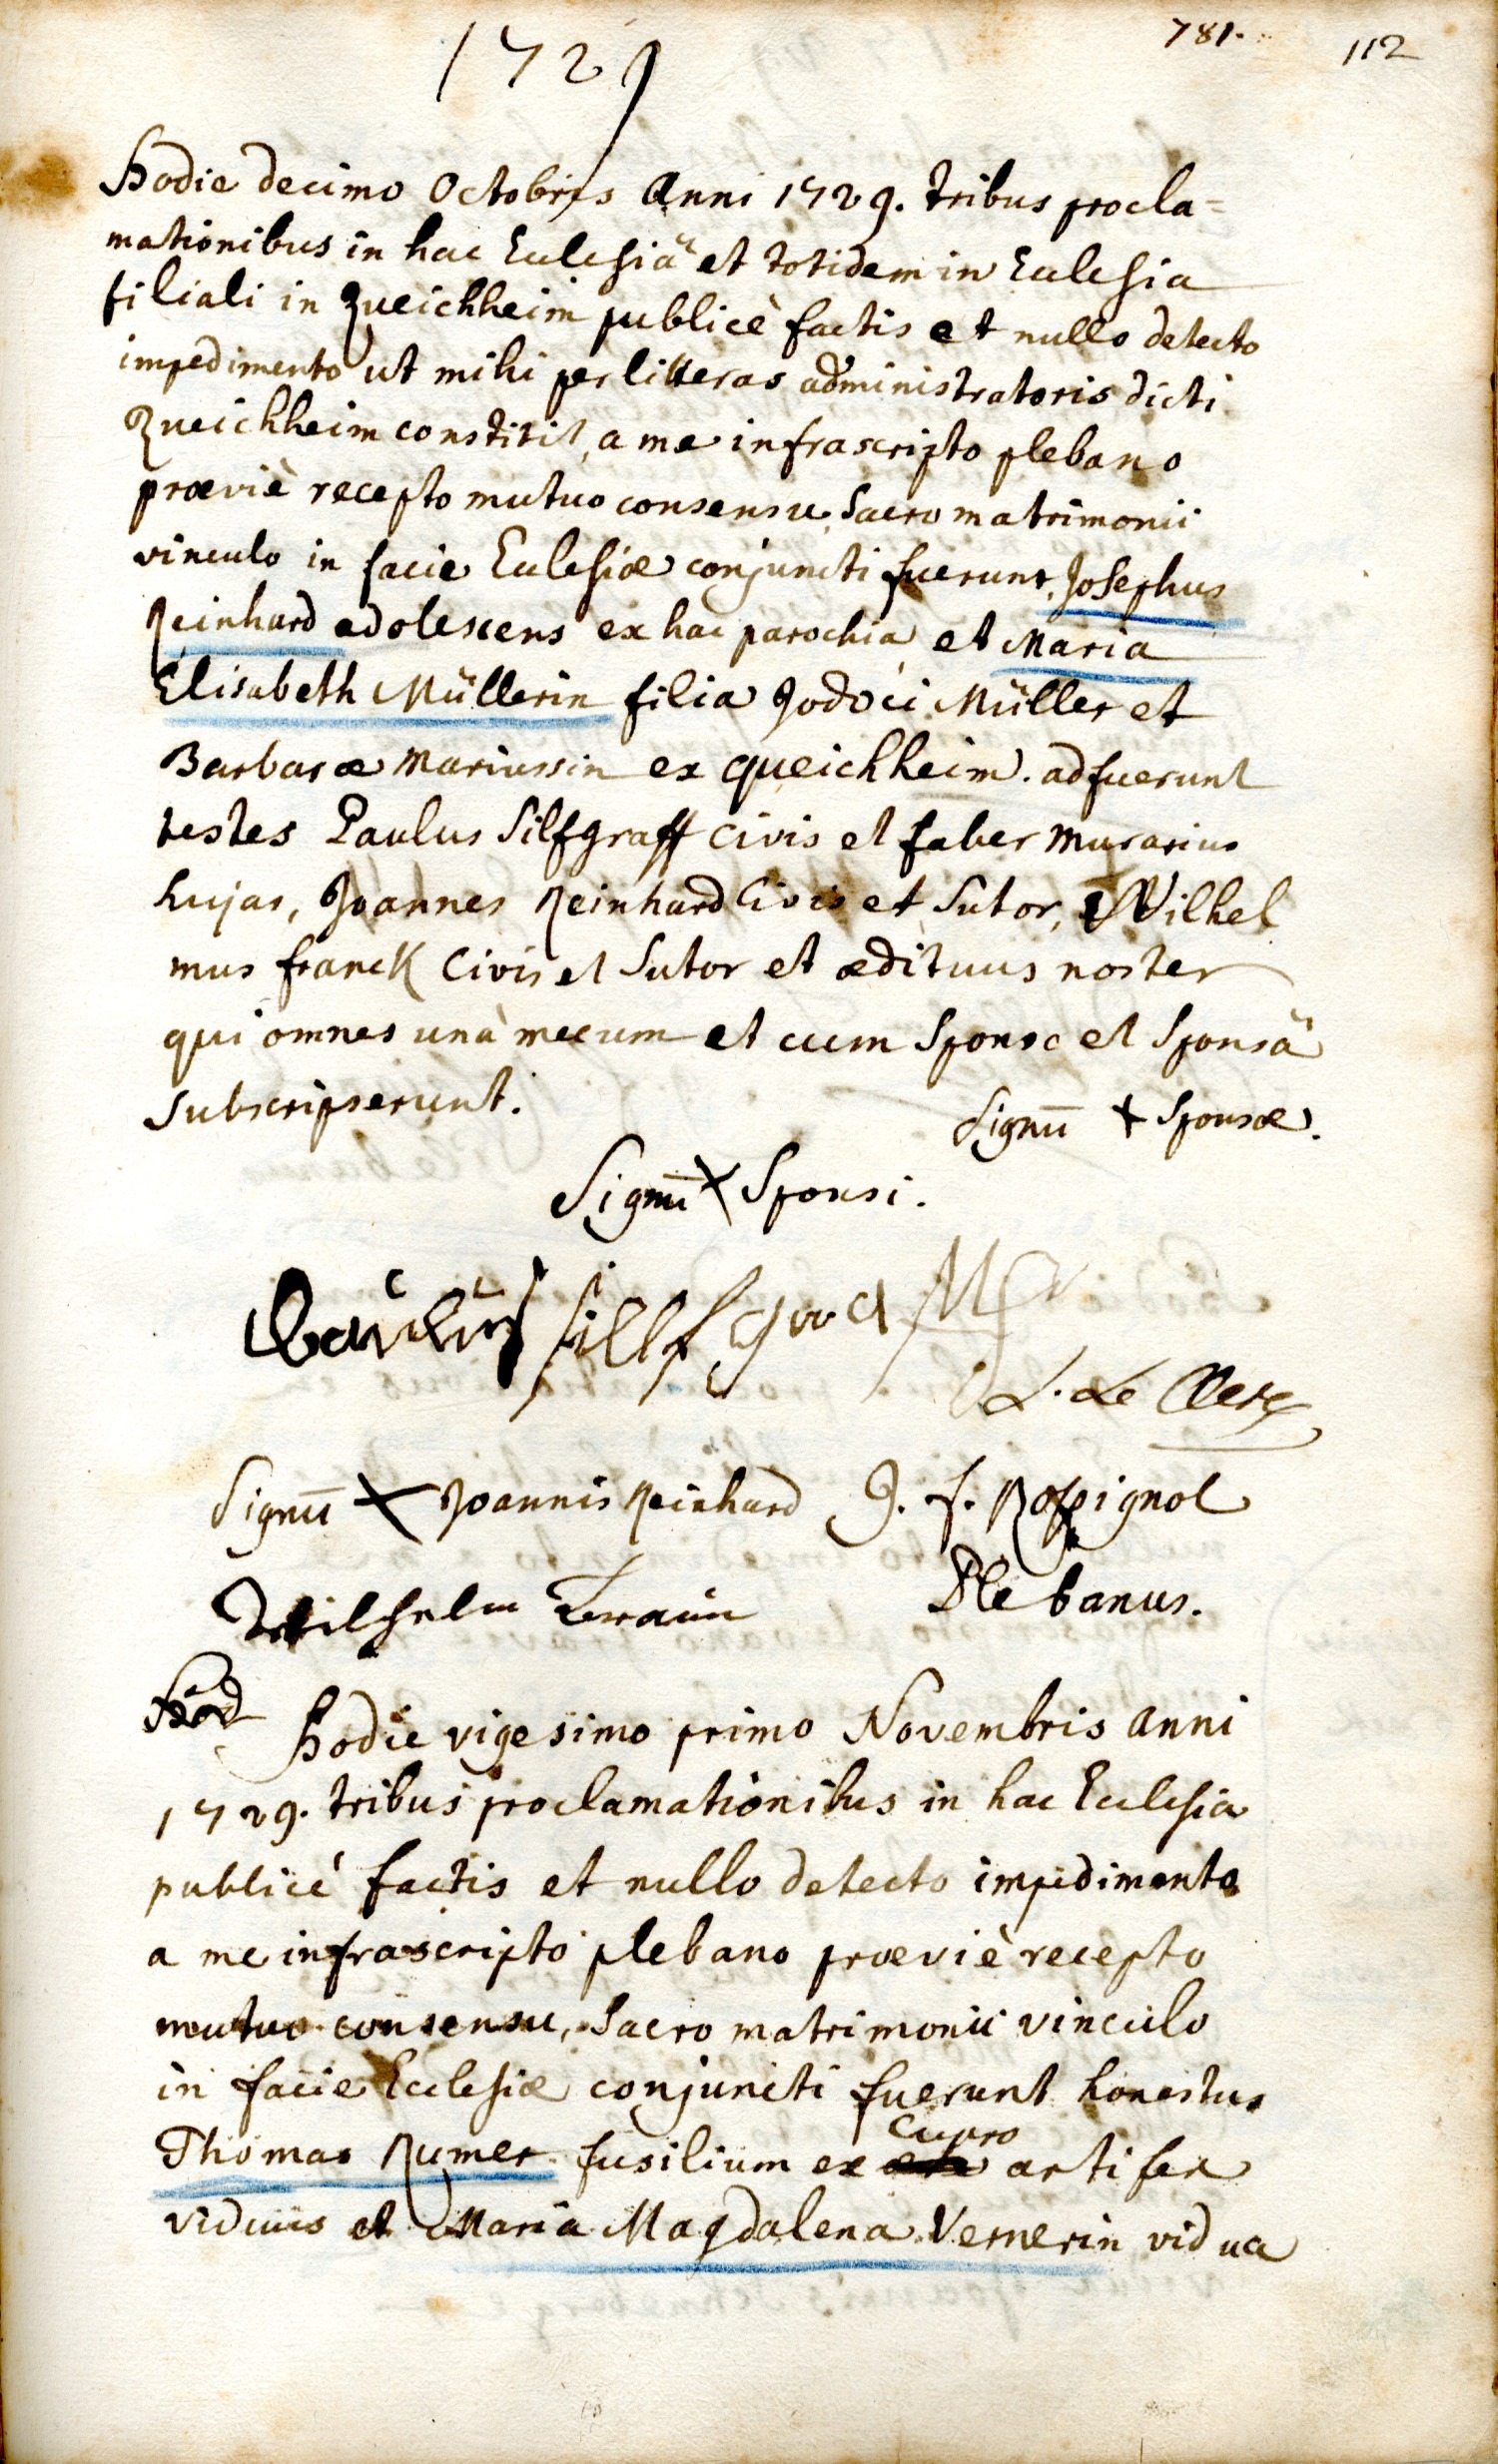 781.
112
1729
Hodie decimo Octobris Anni 1729. tribus procla=
mationibus in hac Ecclesiâ et totidem in Ecclesia
filiali in Queichheim publicè factis et nullo detecto
impedimento ut mihi per litteras administratoris dicti
Queichheim constitit, a me infrascripto plebano
præviè recepto mutuo consensu, Sacro matrimonii
vinculo in facie Ecclesiæ conjuncti fuerunt Josephus
Reinhard adolescens ex hac parochia et Maria
Elisabeth Müllerin filia Jodoci Müller et
Barbaræ Mariussin ex queichheim. adfuerunt
testes Paulus Silfgraff civis et faber murarius
hujas, Joannes Reinhard Civis et Sutor, Wilhel
mus franck Civis et Sutor et ædituus noster
qui omnes unà mecum et cum Sponso et Sponsâ
Subscripserunt.
Signū + Sponsæ.
Signū + Sponsi.
Paulus sillf
L. Le Clerc
Signū + Joannis Reinhard J. f. Rossignol
Wilhelm
Plebanus.
Hod
Hodie vigesimo primo Novembris anni
1729. tribus proclamationibus in hac Ecclesia
publicè factis et nullo detecto impedimento
a me infrascripto plebano præviè recepto
mutuo consensu, Sacro matrimonii vinculo
in facie Ecclesiæ conjuncti fuerunt honestus
Thomas Rumer fusilium ex cupro artifex
viduus et Maria Magdalena Vernerin vidua